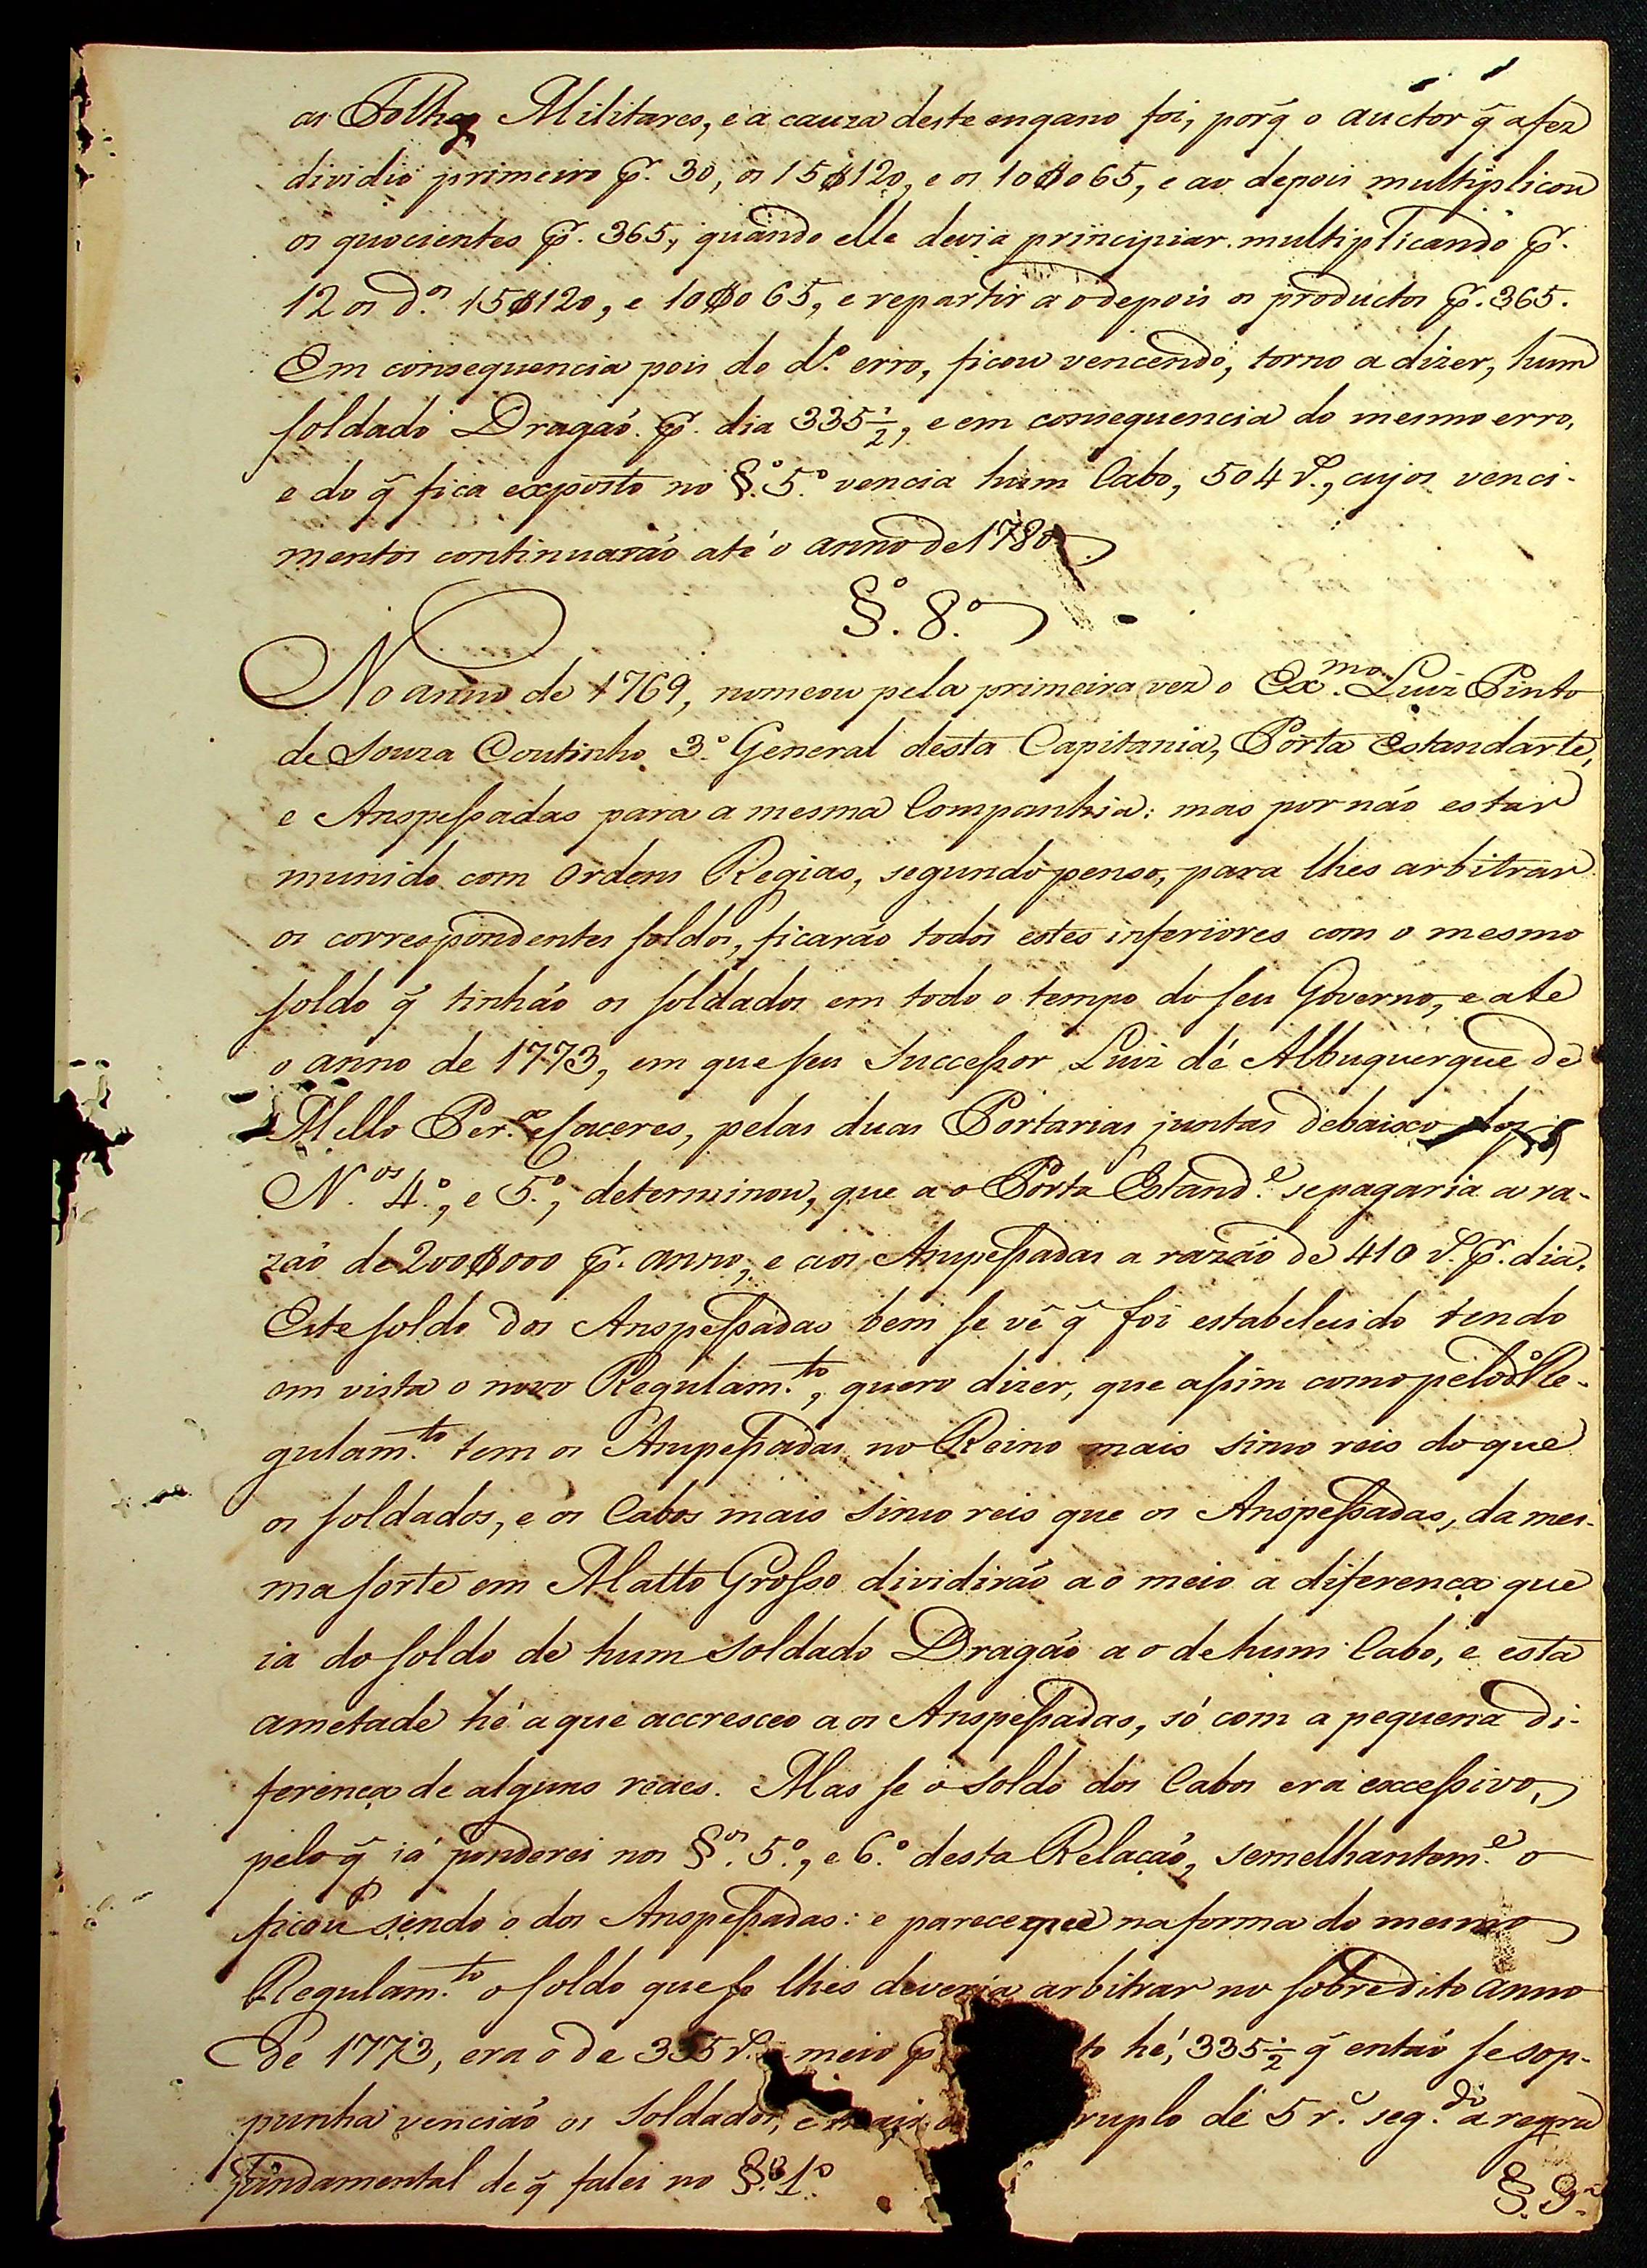 as Folhas Militares, e a cauza deste engano foi, porq̃ o auctor q̃ a fez
dividio primeiro p.r 30, os 15$120, e os 10$065, e ao depois multiplicou
os quocientes p.r 365, quando elle devia principiar multiplicando p.r
12 os d.os 15$120, e 10$065, e repartir ao depois os productos p.r 365.
Em consequencia pois do d.o erro, ficou vencendo, torno a dizer, hum
soldado Dragaõ p.r dia 335½, e em consequencia do mesmo erro,
e do q̃ fica exposto no §.o 5.o vencia hum Cabo, 504 r.s, cujos venci-
mentos continuaraõ até o anno de 1780.
§.o 8.o
No anno de 1769, nomeou pela primeira vez o Ex.mo Luiz Pinto
de Souza Coutinho 3.o General desta Capitania, Porta Estandarte,
e Anspessadas para a mesma Companhia: mas por naõ estar
munido com Ordens Regias, segundo penso, para lhes arbitrar
os correspondentes soldos, ficaraõ todos estes inferiores com o mesmo
soldo q̃ tinhaõ os soldados em todo o tempo do seu Governo, e até
o anno de 1773, em que seu Successor Luiz de Albuquerque de
Mello Per.a e Caceres, pelas duas Portarias juntas debaixo dos
N.os 4.o, e 5.o, determinou, que ao Porta Estand.e se pagaria a ra-
zaõ de 200$000 p.r anno, e aos Anspessadas a razaõ de 410 r.s p.r dia.
Este soldo dos Anspessadas bem se vê q̃ foi estabelecido tendo
em vista o novo Regulam.to, quero dizer, que assim como pelo d.o Re-
gulam.to tem os Anspessadas no Reino mais sinco reis do que
os soldados, e os Cabos mais sinco reis que os Anspessadas, da mes-
ma sorte em Matto Grosso dividiraõ ao meio a diferença que
ia do soldo de hum soldado Dragaõ ao de hum Cabo, e esta
ametade hé a que accresceo aos Anspessadas, só com a pequena di-
ferença de alguns reaes. Mas se o soldo dos Cabos era excessivo,
pelo q̃ já ponderei nos §.os 5.o, e 6.o desta Relaçaõ, semelhantem.e o
ficou sendo o dos Anspessadas: e parece que na forma do mesmo
Regulam.to o soldo que se lhes deveria arbitrar no sobredito anno
de 1773, era o de 355 r.s meio p.r to hé, 335½ q̃ entaõ se sop-
punha venciaõ os soldados, e mais o ruplo de 5 r.s seg.do a regra
fundamental de q̃ falei no §.o 1.o
§. 9.o